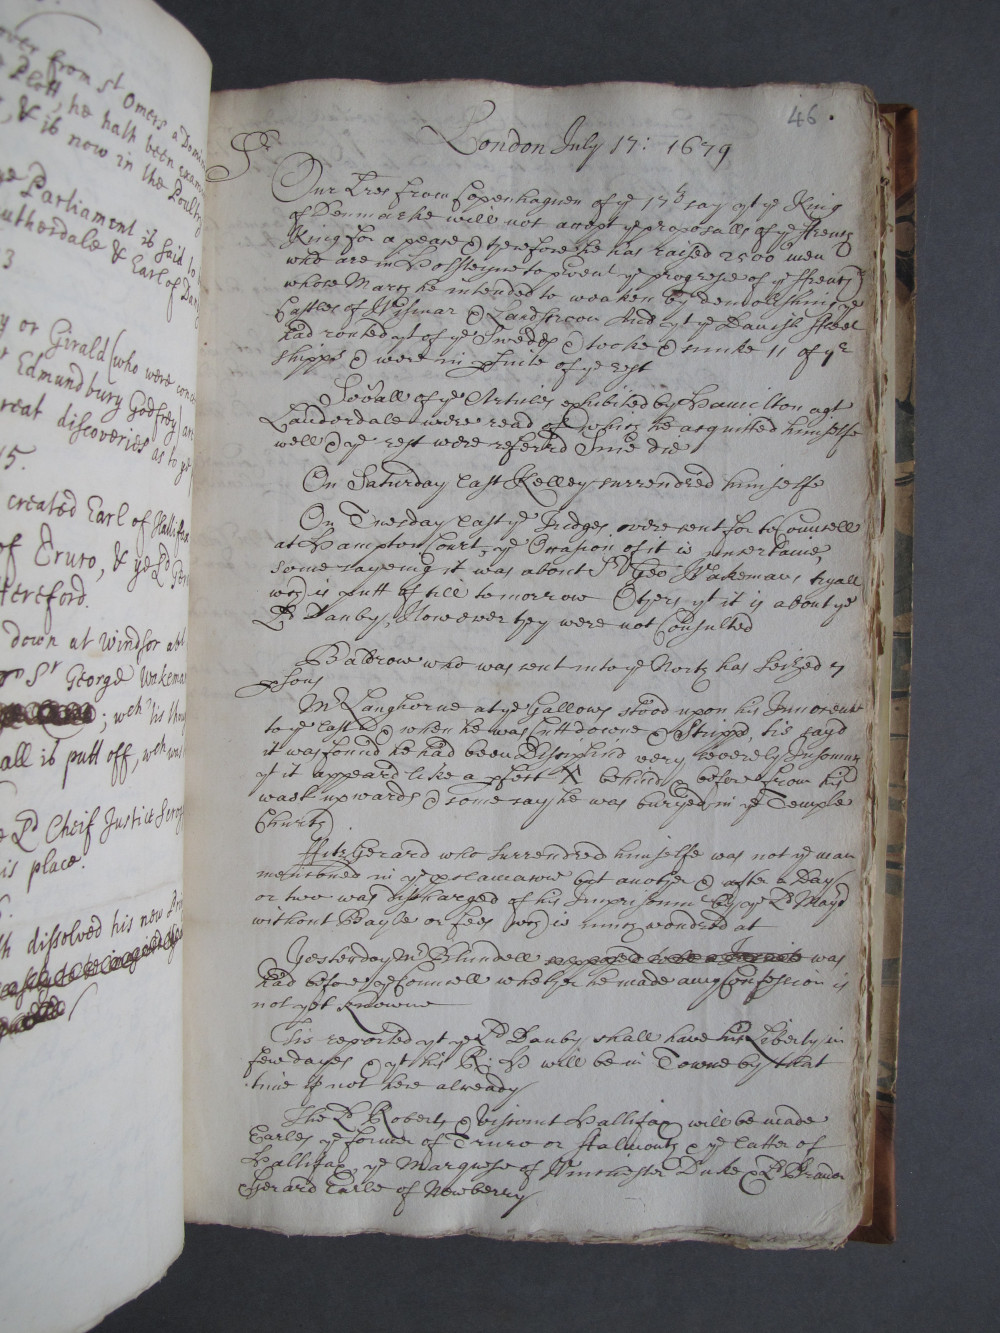 over from St Omers a Domi
Plott, he hath been exami
& is now in the Poultry
ye Parliament is said to
Lutherdale & Earl of Dan
3
y or Girald (who were conc
Edmundbury Godfrey) are
reat discoveries as to ye
15.
created Earl of Hallifax
of Truro, & ye Ld Gera
Hereford.
down at Windsor abt
Sr George Wakeman
; wch 'tis thou
all is putt off, wch was
e Ld Cheif Justice Scrog
is place.
th dissolved his new Pri
46.
London July 17: 1679
Sr
Our Lres from Copenhaguen of ye 17th say yt ye King
of Denmarke will not accept ye proposalls of ye French
King for a peace & therefore he has raised 2500 men
who are in Holsteyne to prvent ye progresse of ye French
whose March he intended to weaken by demollishing ye
Castles of Wismar & Landscroon And yt ye Danish Fleet
had routed yt of ye Swedes & tooke & sunke 11 of yr
Shipps & were in psuite of ye rest
Sevall of ye Articles exhibited by Hamilton agt
Lauderdale were read of which he acquitted himselfe
well & ye rest were referrd Sine die
On Saturday last Kelley surrendred himselfe
On Tuesday last ye Judges were sent for to Councell
at Hampton Court, ye Occasion of it is uncertaine,
some sayeing it was about Sr Geo: Wakemans tryall
wch is putt of till to morrow Others yt it is about ye
Ld Danby, However they were not Consulted
Baldrow who was sent into ye North has Seized 7
psons
Mr Langhorne at ye Gallows stood upon his Innocence
to ye last & when he was Cutt downe & Stripp'd, tis sayd
it was found he had been Disciplin'd very severely Insomuch
yt it appeard like a pfect X behind & before from his
wast upwards & some say he was buryed in ye Temple
Church
Fitz Gerard who surrendred himselfe was not ye man
mentioned in ye pclamation but another & after a Day
or two was discharged of his Imprisonmt by ye Ld Mayor
without Bayle or fees wch is much wondred at
Yesterday Mr Blundell supposed to be a Jesuite was
had before ye Councell whether he made any Confession is
not yet knowne
Tis reported yt ye Ld Danby shall have his Liberty in
few dayes & yt his R: H will be in Towne by that
time if not here already
The Ld Roberts & Viscount Hallifax will be made
Earles ye former of Truro or Falmouth & ye latter of
Hallifax, ye Marquese of Winchester Duke & Ld Brandon
Gerard Earle of Newberry